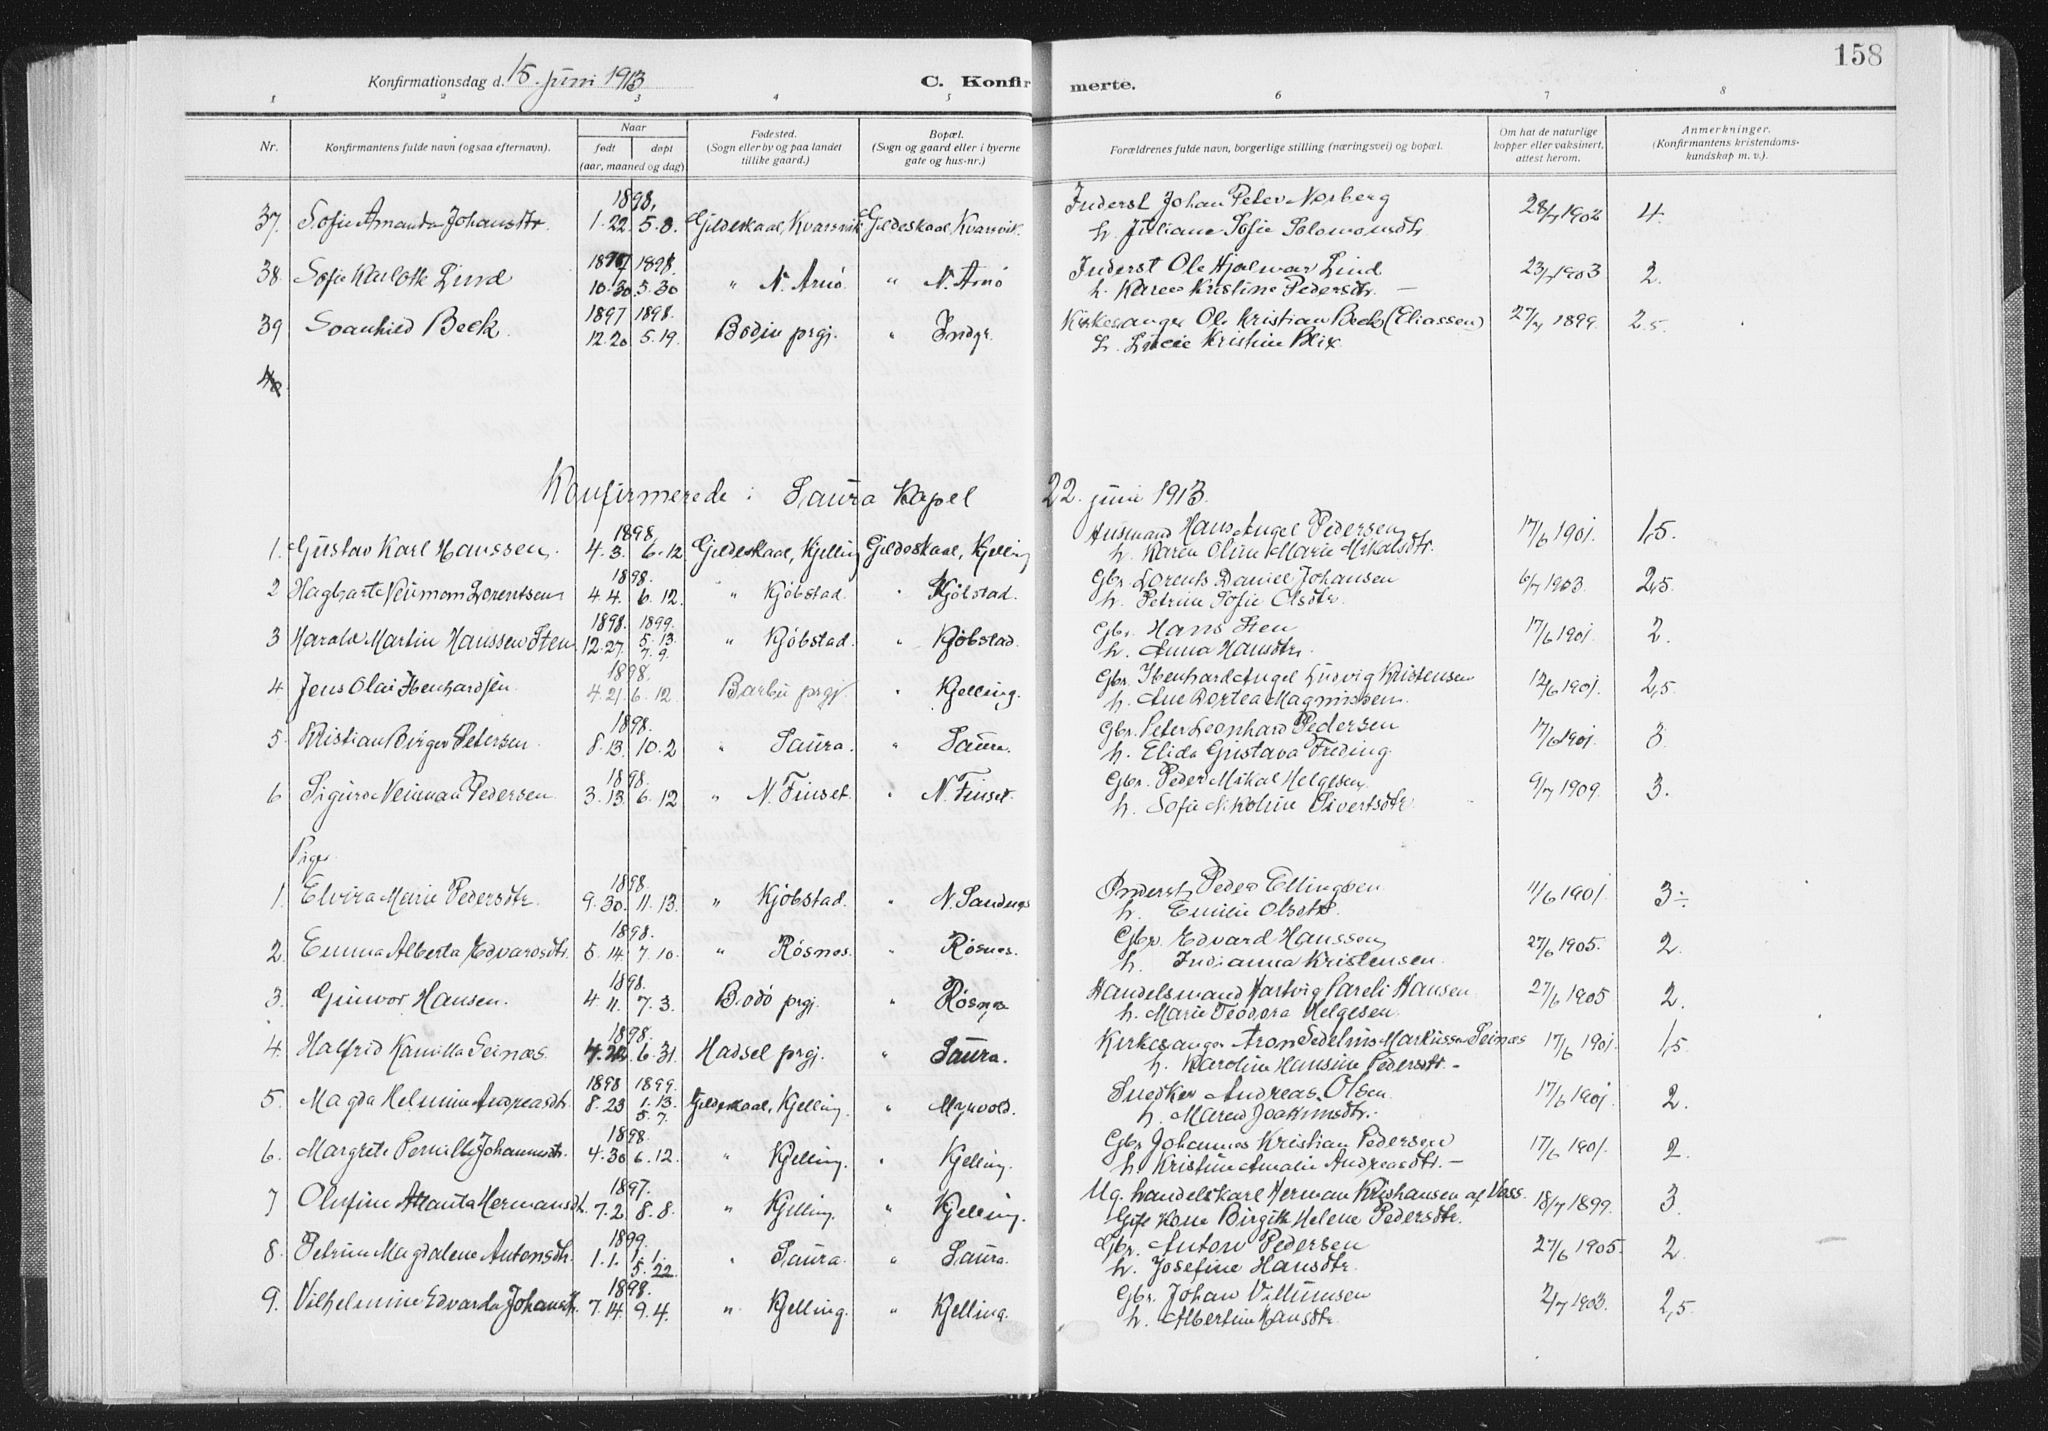 158
Konfirmationsdag d. 15. juni 1913
C. Konfirmerte.
1 2 3 4 5 6 7 8
Nr.
Konfirmantens fulde navn (ogsaa efternavn).
Naar
født
døpt
(aar, maaned og dag)
Fødested.
(Sogn eller by og paa landet
tillike gaard.)
Bopæl.
(Sogn og gaard eller i byerne
gate og hus-nr.)
Forældrenes fulde navn, borgerlige stilling (næringsvei) og bopæl.
Om hat de naturlige
kopper eller vaksinert,
attest herom.
Anmerkninger.
(Konfirmantens kristendoms-
kundskap m. v.).
1898. Inderst Johan Peter Norberg
37. Sofie Amanda Johansdtr. 1.22 5.8. Gildeskaal, Kvarsvik Gildeskaal, Kvarsvik. h. Juliane Sofie Solomonsdtr 28/7 1902 4.
1897 1898. Inderst Ole Hjalmar Lind
38. Sofie Karlotte Lind 10.30. 5.30 " N. Arnö. " N. Arnö h. Karen Kristine Pedersdtr. — 23/7 1903 2.
1897 1898. Kirkesanger Ole Kristian Beck (Eliassen)
39 Svanhild Beck. 12.20 5.19. Bodin prgj. " Indyr. h. Lucie Kristine Blix. 27/7 1899. 2.5.
40
Konfirmerede i Saura Kapel 22. juni 1913.
1898. Husmand Hans Angel Pedersen
1. Gustav Karl Hanssen. 4.3. 6.12 Gildeskaal, Kjelling Gildeskaal, Kjelling h. Karen Oline Marie Mikalsdtr. 17/6 1901. 1,5.
1898. Gbr. Lorents Daniel Johansen
2 Hagbarte Neumann Lorentsen 4.4. 6.12. " Kjöbstad. " Kjöbstad. h. Petrine Sofie Olsdtr. 6/7 1903. 2,5.
1898. 1899. Gbr. Hans Sten
3 Harald Martin Hanssen Sten 12.27. 5.13. 7.9. " Kjöbstad. " Kjöbstad. h. Anna Hansdtr. 17/6 1901. 2.
1898. Gbr. Ibenhard Angel Ludvig Kristensen
4 Jens Olai Ibenhardsen. 4.21 6.12 Barbu prgj. " Kjelling. h. Ane Dortea Magnussen. 12/6 1901. 2,5.
1898. Gbr. Peter Leonhard Pedersen
5. Kristian Birger Petersen. 8.13. 10.2 " Saura. " Saura. h. Elida Gustava Freding. 17/6 1901. 3.
1898. Gbr. Peder Mikal Helgesen
6 Sigurd Neuman Pedersen 3.13. 6.12 " N. Finset. " N. Finset. h. Sofie Nikoline Sivertsdtr 9/7 1909. 3.
Piger.
1898. Inderst Peder Ellingsen
1. Elvira Marie Pedersdtr. 9.30. 11.13. " Kjöbstad. " N. Sandnes h. Emilie Olsdtr. 11/6 1901. 3÷
1898. Gbr. Edvard Hanssen
2. Emma Alberta Edvardsdtr. 5.14. 7.10. " Rösnes. " Rösnes. h. Indianna Kristensen. 27/6 1905. 2.
1898. Handelsmand Hartvig Sareli Hansen
3. Gunvor Hansen. 4.11. 7.3. Bodö prgj. " Rösnes h. Marie Teodora Helgesen. 27/6 1905 2.
1898. Kirkesanger Aron Sedelius Markussen Seinæs
4. Halfrid Kamilla Seines. 4.22. 6.31. Hadsel prgj. " Saura. h. Karoline Hansine Pedersdtr. – 17/6 1901. 1,5
1898 1899. Snedker Andreas Olsen
5. Magda Helmine Andreasdtr. 8.23 1.13. 5.7. Gildeskaal, Kjelling. " Myrvold. h. Maren Joakimsdtr. 17/6 1901 2.
1898. Gbr. Johannes Kristian Pedersen
6. Margrete Pernille Johannesdtr. 4.30 6.12. " Kjelling. " Kjelling. h. Kristine Amalie Andreasdtr. — 17/6 1901. 2.
1897. Ug. handelskarl Herman Kristiansen af Voss.
7 Olufine Atlanta Hermansdtr. 7.2. 8.8. " Kjelling. " Kjelling. Gift kone Birgitte Helene Pedersdtr. 18/7 1899. 3
1899. Gbr. Anton Pedersen
8. Petrine Magdalene Antonsdtr. 1.1. 1.1. 5.22. " Saura. " Saura. h. Josefine Hansdtr. 27/6 1905. 2
1898. Gbr. Johan Villumsen
9. Vilhelmine Edvarda Johansdtr. 7.14. 9.4. " Kjelling. " Kjelling. h. Albertine Hansdtr. 2/7 1903. 2,5.